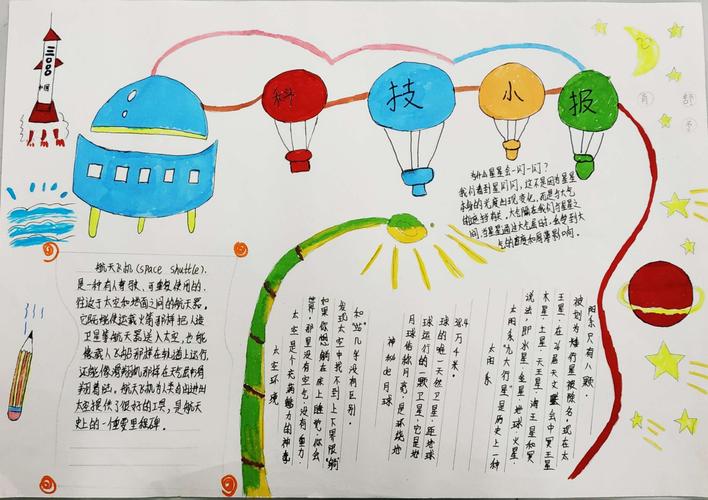 三000
中国
科技小报
为什么星星会一闪一闪?
我们看到星闪闪,这不是因为星星
本身的光度出现变化,而是与大气
的遮挡有关。大气隔在我们与星星之
间,当星星通过大气层时,会受到大
气的密度和厚薄影响。
航天飞机(space shuttle),
是一种有人驾驶、可重复使用的、
往返于太空和地面之间的航天器。
它既能像运载火箭那样把人造
卫星等航天器送入太空,也能
像载人飞船那样在轨道上运行,
还能像滑翔机那样在大气层中滑
翔着陆。航天飞机为人类自由进出
太空提供了很好的工具,是航天
史上的一个重要里程碑。
太空环境
太空是个充满魅力的神奇
世界,那里没有空气,没有重力,
如果你想躺在床上睡觉,你会
发现太空中找不到上下界限,“躺”
和“站”几乎没有区别。
神秘的月球
月球俗称月亮,是环绕地
球运行的一颗卫星。它是地
球的唯一天然卫星,距地球
万千米。
太阳系
太阳系“九大行星”是历史上一种
说法,即水星·金星·地球·火星·
木星·土星·天王星·海王星和冥
王星。在天文联会中冥王星
被划为矮行星被除名,现在太
阳系只有八颗.